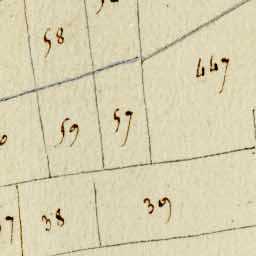 58
447
59
57
38
39